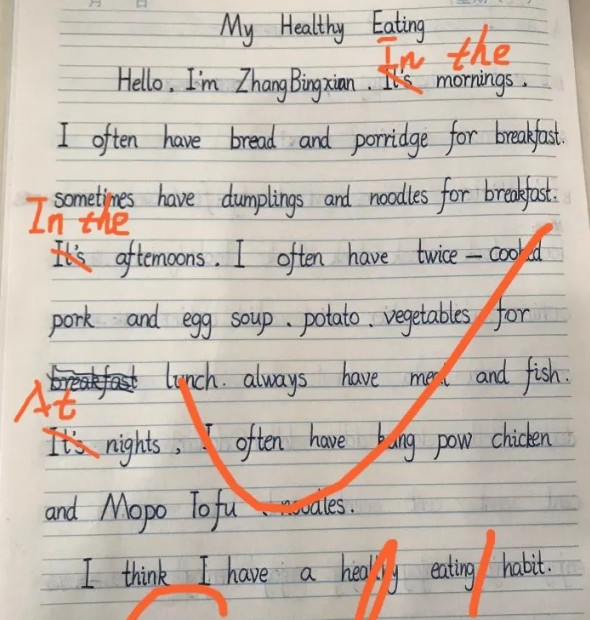 My Healthy Eating
In the
Hello, I'm ZhangBingxian. It's mornings.
I often have bread and porridge for breakfast.
sometimes have dumplings and noodles for breakfast.
In the
It's afternoons. I often have twice-cooked
pork and egg soup. potato. vegetables for
breakfast lunch. always have meat and fish.
At
It's nights, I often have kung pow chicken
and Mopo Tofu noodles.
I think I have a healthy eating habit.